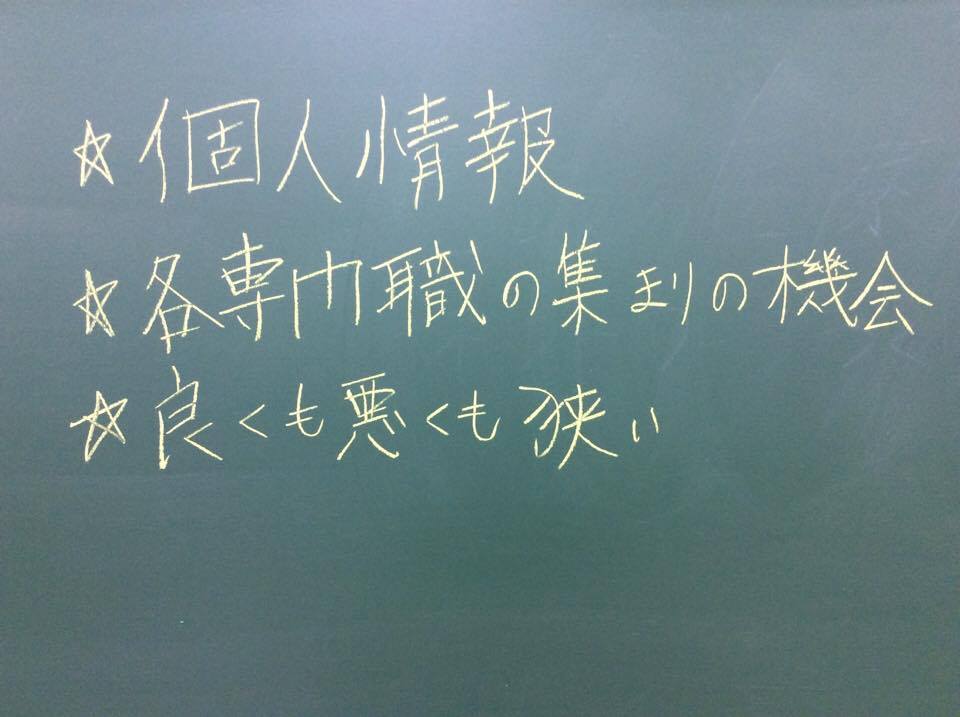 ☆個人情報
☆各専门職の集まりの機会
☆良くも悪くも狭い